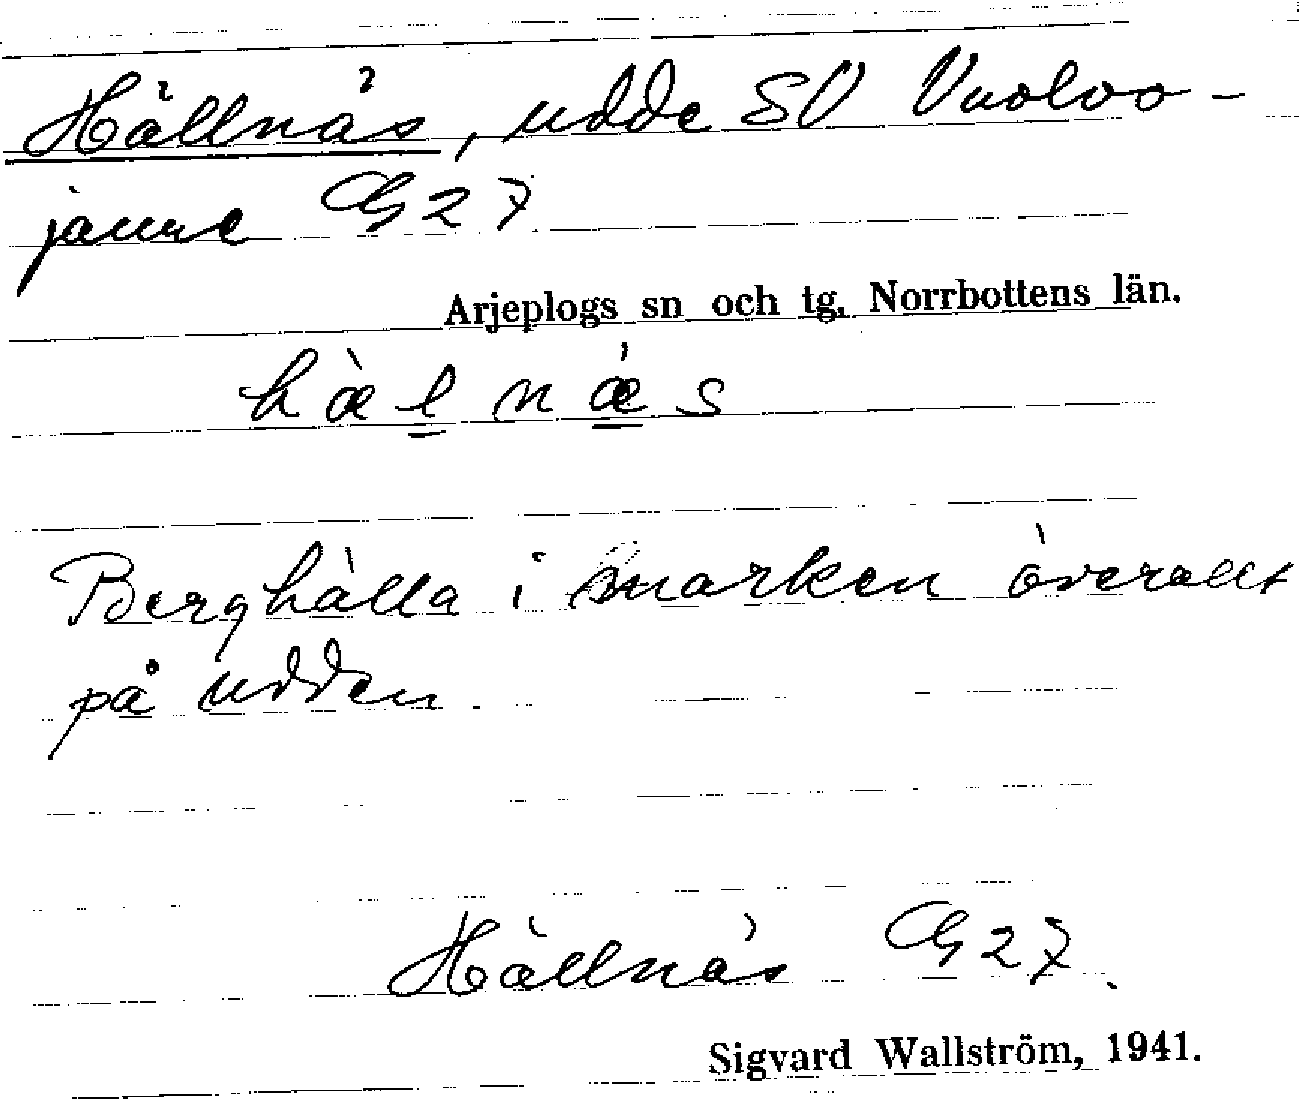 Hällnäs, udde SV Vuolvo-
jaure G27
Arjeplogs sn och tg, Norrbottens län.
hæ̀l nǽs
Berghälla i marken överallt
på udden
Hällnäs G27.
Sigvard Wallström, 1941.